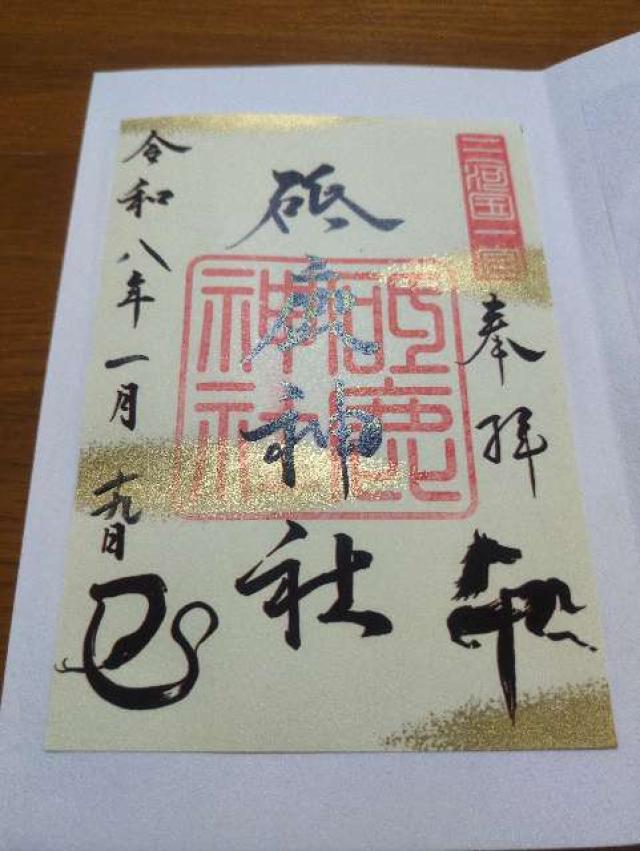 三河国一宮
奉拝
午
砥鹿神社
砥鹿神社
令和八年一月十九日
巳